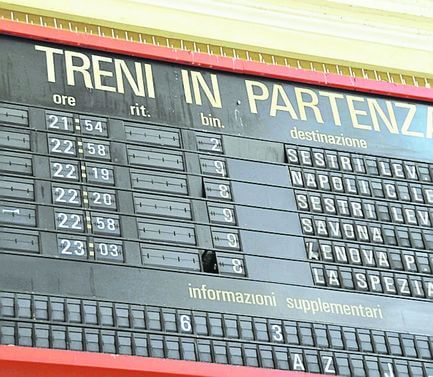 TRENI IN PARTENZA
ore rit. bin. destinazione
21:54 2 SESTRI LEV
22:58 9 NAPOLI
22:19 8 SESTRI LEV
22:20 8 SAVONA
22:58 9 P
23:03 8 LA SPEZIA
informazioni supplementari
6 3
A Z J